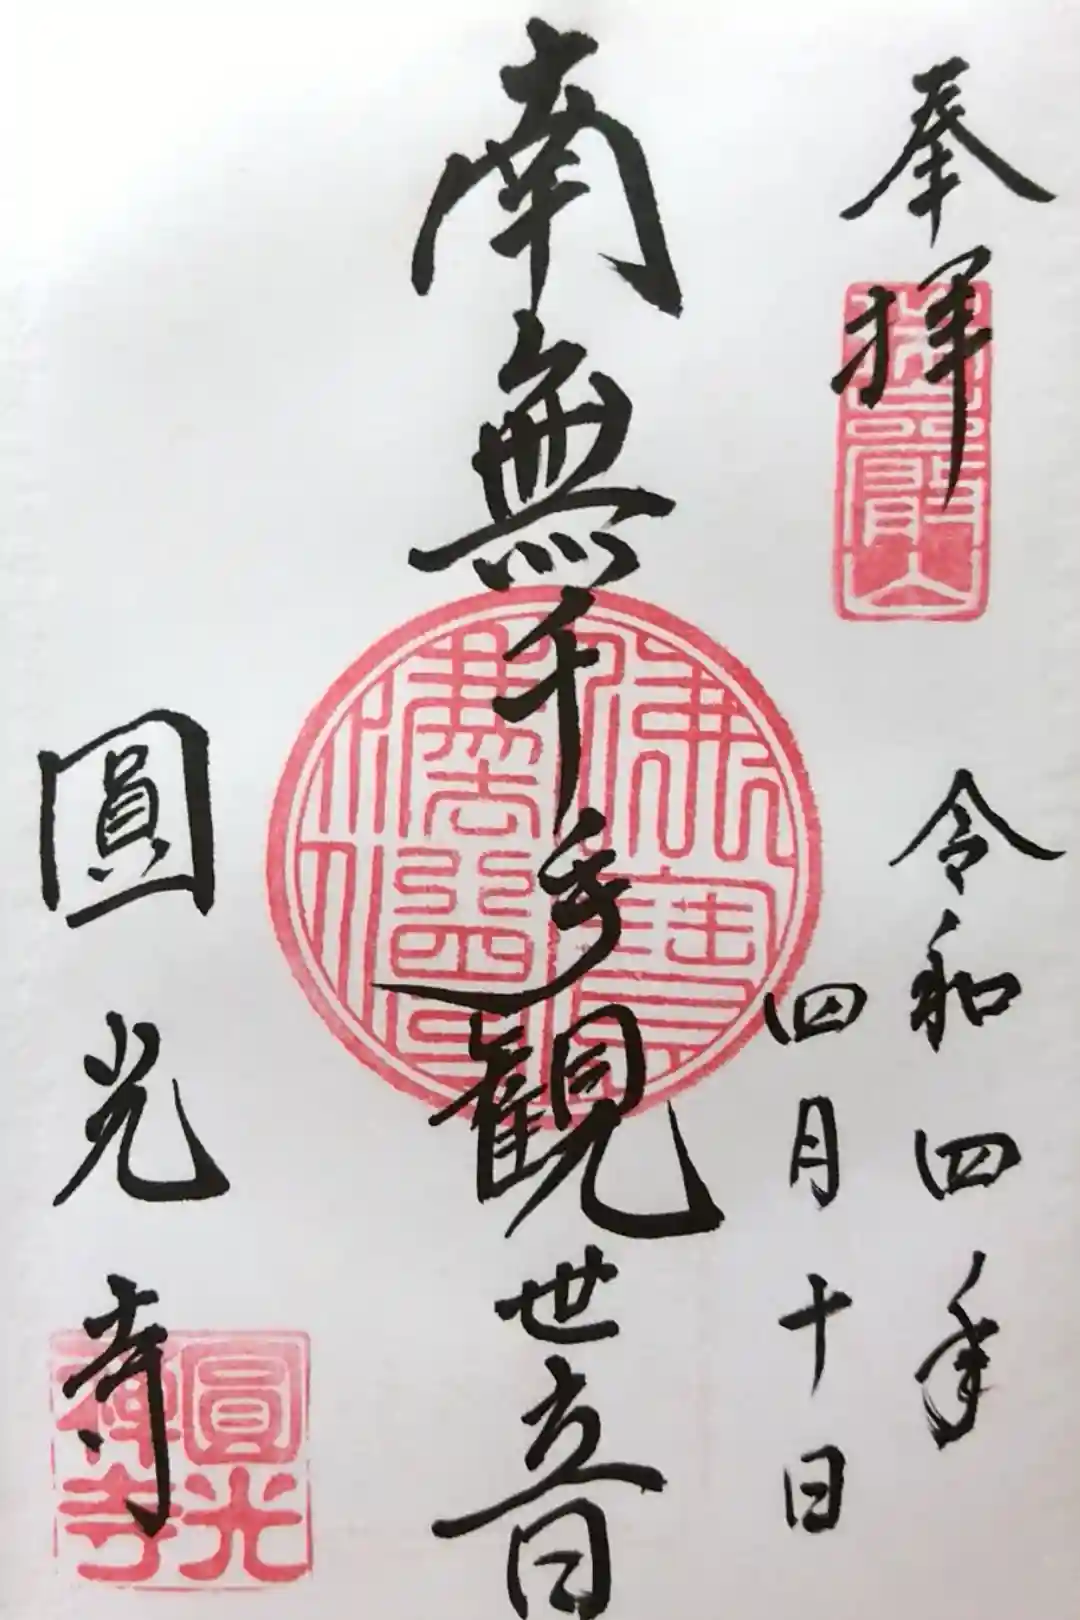 奉拝
令和四年
四月十日
南無千手観世音
圓光寺
圓光禅寺
佛法僧寶